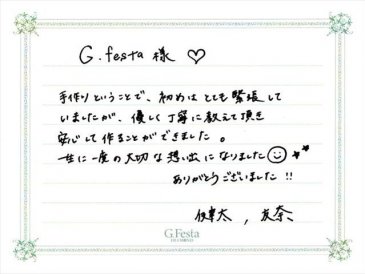 G.festa 様 ♡
手作りということで、初めはとても緊張して
いましたが、優しく丁寧に教えて頂き
安心して作ることができました。
一生に一度の大切な想い出になりました☺★★
ありがとうございました!!
太, 友奈
G.Festa